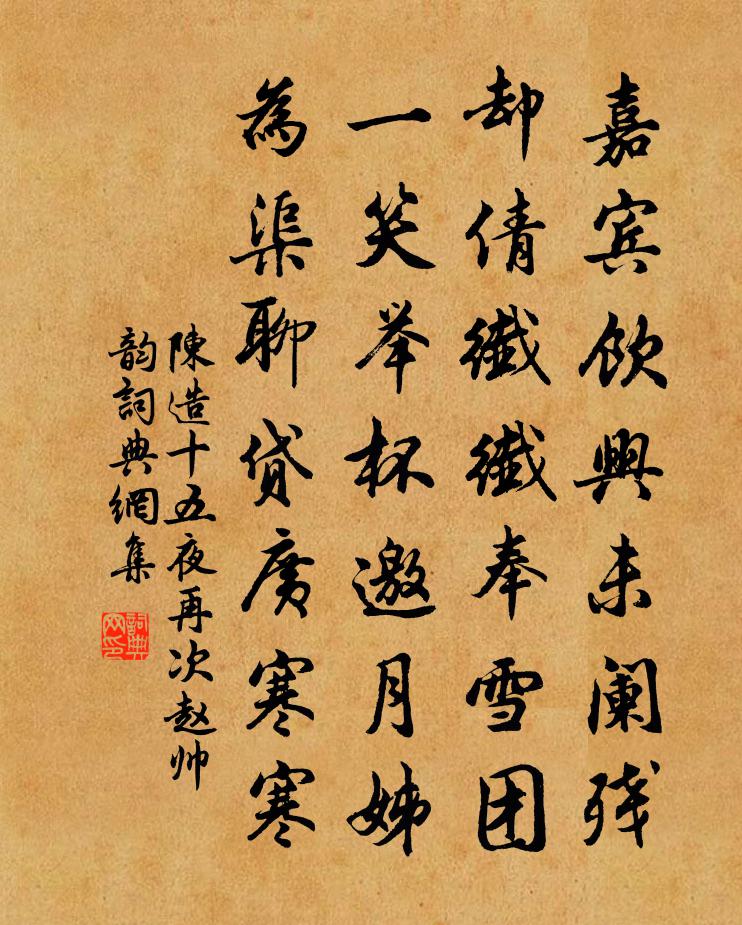 嘉宾饮興未阑残
却倩纖纖奉雪团
一笑举杯邀月姊
為渠聊貸廣寒寒
陳造十五夜再次赵帅
韵詞典網集
詞典
网印